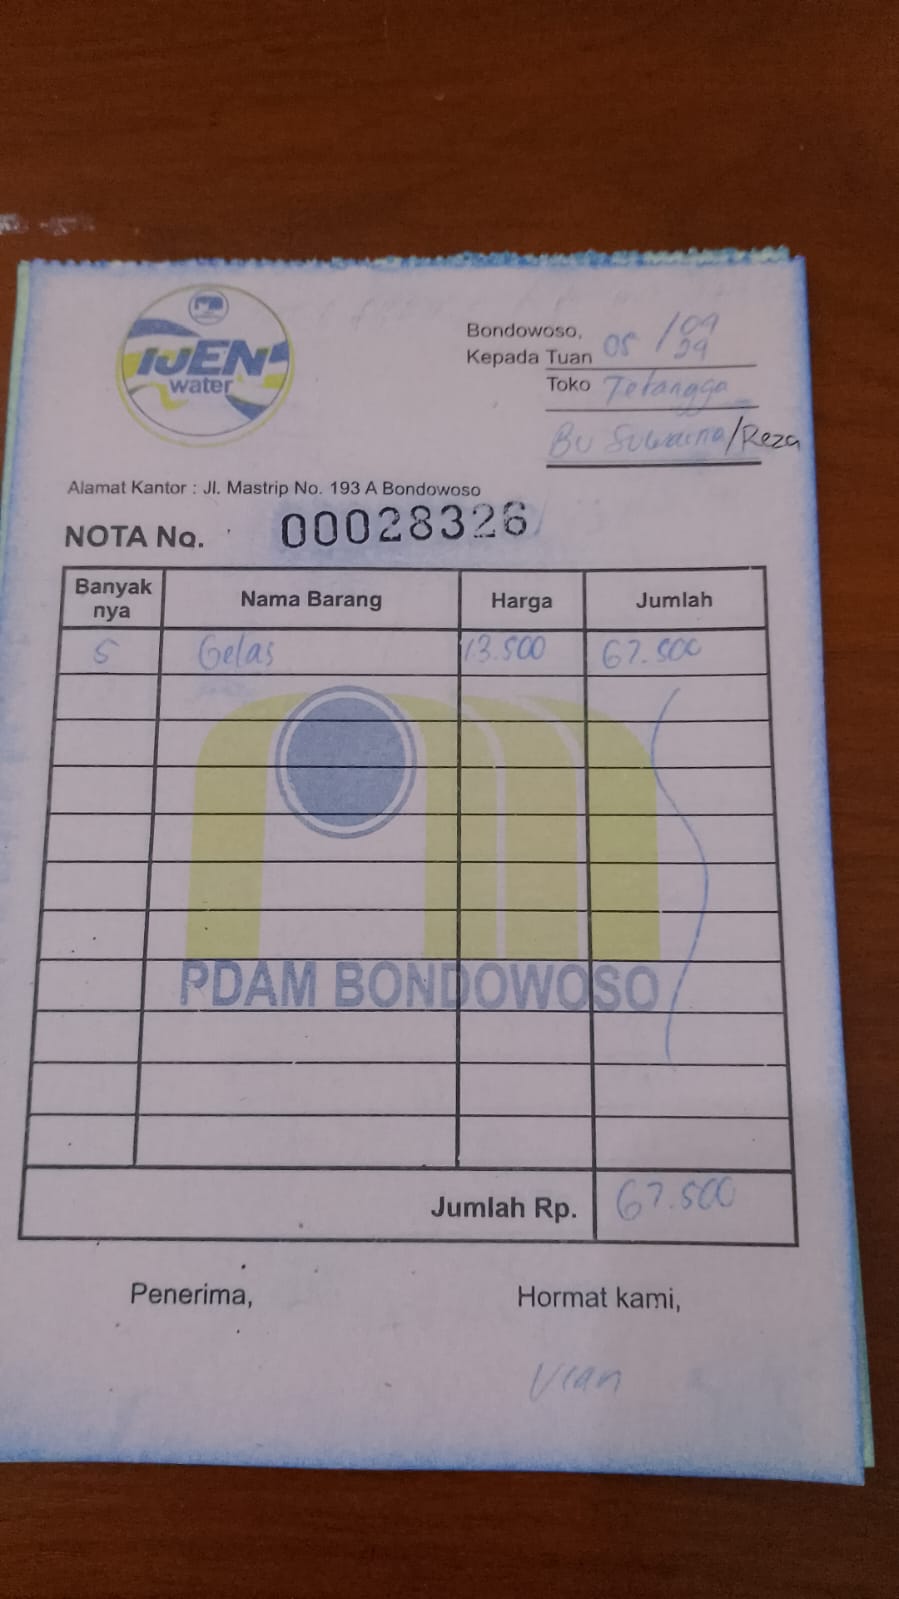 IJEN
water
Bondowoso, 05 / 09
24
Kepada Tuan
Toko Tetangga
Bu Suwarna/Reza
Alamat Kantor : Jl. Mastrip No. 193 A Bondowoso
NOTA No. 00028326
Banyak nya Nama Barang Harga Jumlah
5 Gelas 13.500 67.500
PDAM BONDOWOSO
Jumlah Rp. 67.500
Penerima, Hormat kami,